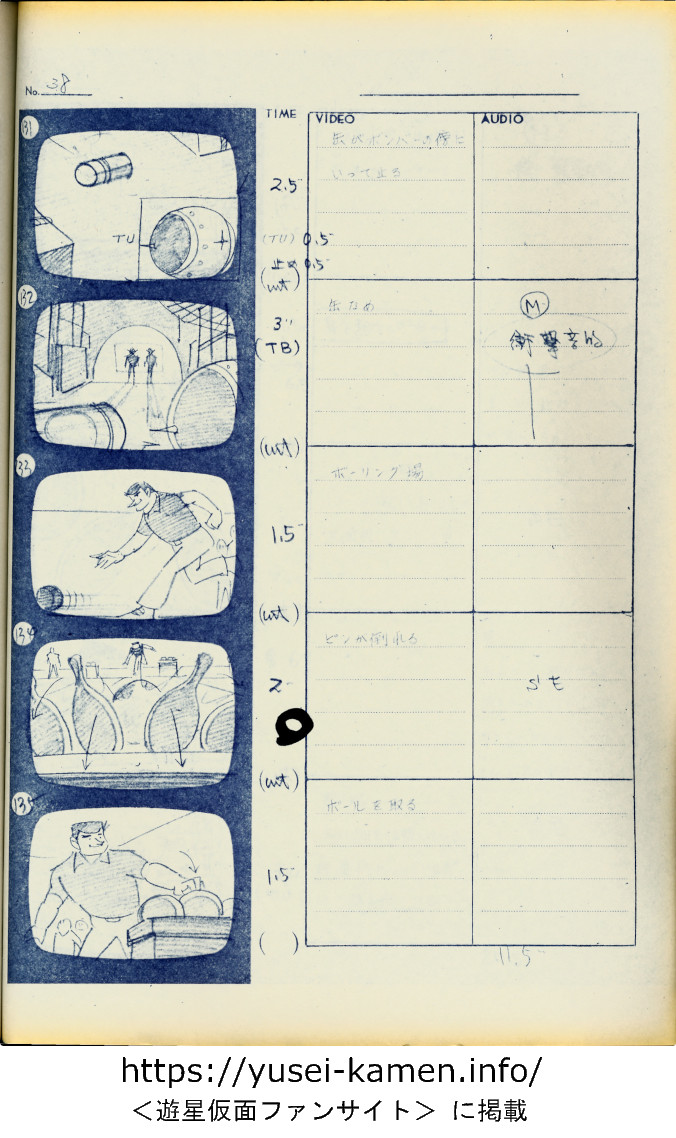 No. 38
TIME
VIDEO
AUDIO
131
缶がボンバーの傍に
いって止る
2.5
TU
(TU) 0.5
止め 0.5
(cut)
132
缶なめ
M
3''
衝撃音的
(TB)
(cut)
133
ボーリング場
1.5
(cut)
134
ピンが倒れる
2
SE
(cut)
135
ボールを取る
1.5
( )
11.5
https://yusei-kamen.info/
＜遊星仮面ファンサイト＞ に掲載